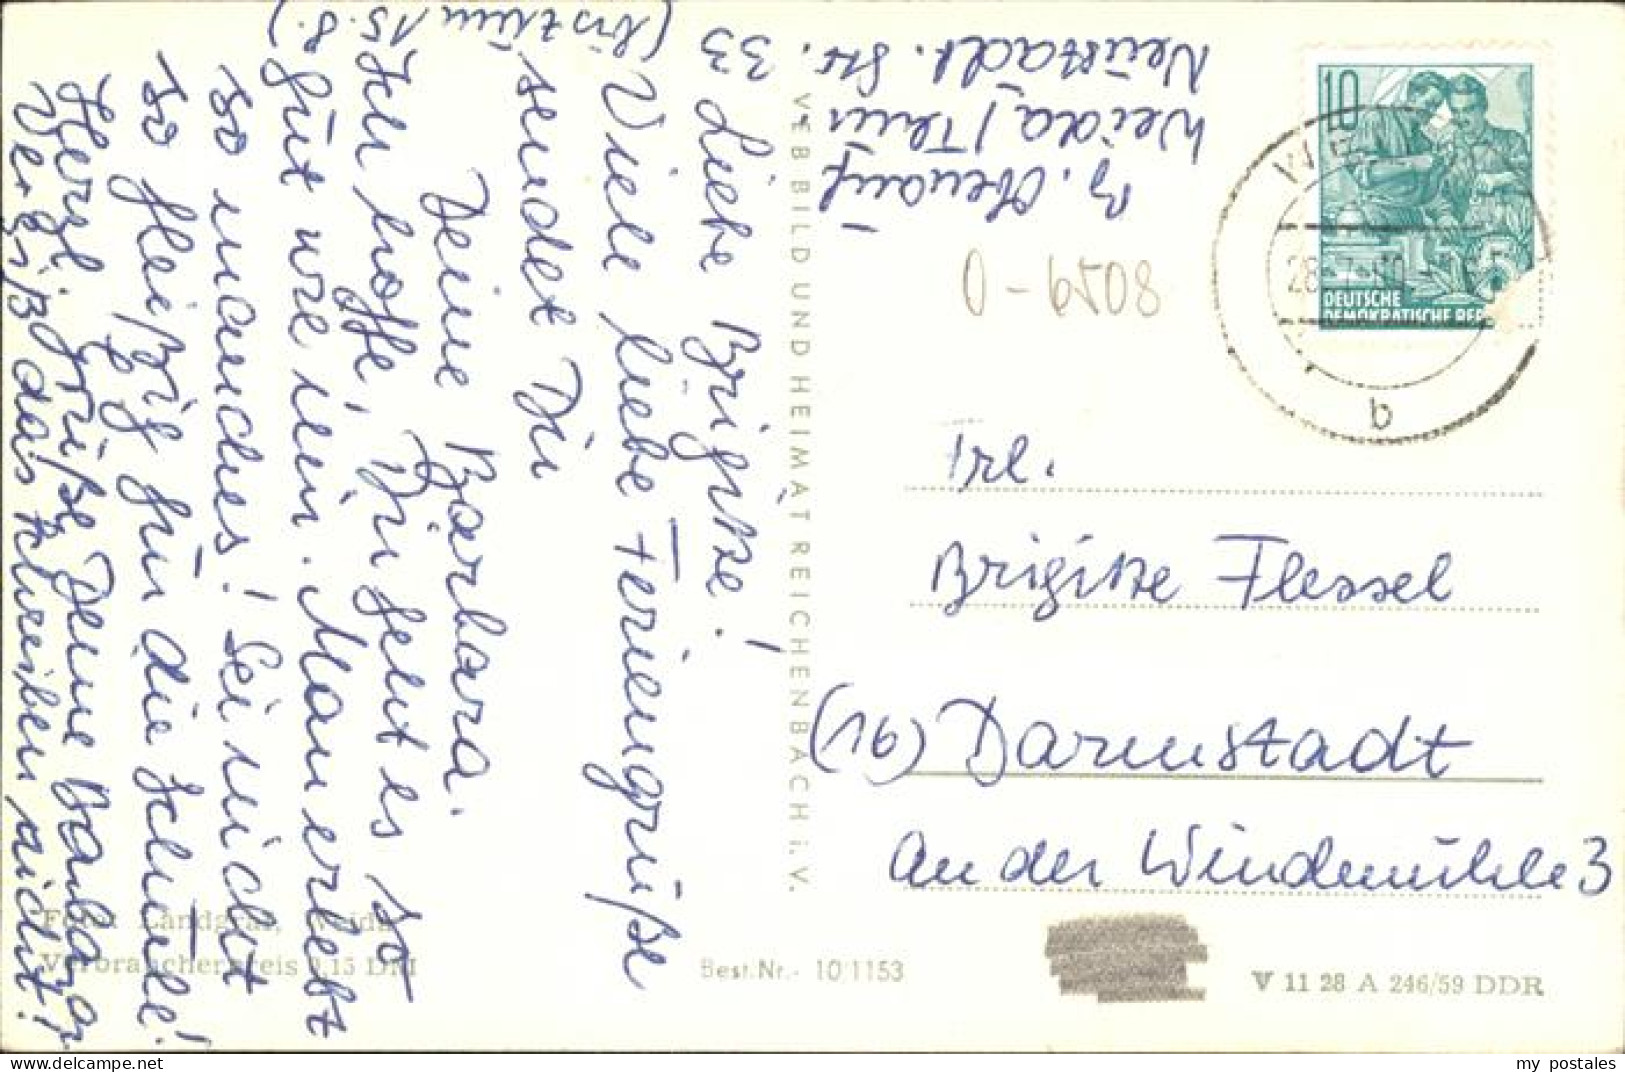 B. Obenauf
Weida / Thür
Neustädt. Str. 33
(bis zum 15.8.)
Liebe Brigitte!
Viele liebe Feriengrüße
sendet Dir
Deine Barbara.
Ich hoffe, Dir geht es so
gut wie mir. Man erlebt
so manches! Sei nicht
so fleißig für die Schule!
Herzl. Grüße Deine Barbara
Vergiß das Schreiben nicht!
VEB BILD UND HEIMAT REICHENBACH i. V.
10
DEUTSCHE
DEMOKRATISCHE REP
5
28.7.60
b
O-6508
Frl.
Brigitte Flessel
(16) Darmstadt
An der Windmühle 3
Foto: Landgraf, Weida
Verbraucherpreis 0,15 DM
Best.Nr.- 10 1153
V 11 28 A 246/59 DDR
my postales